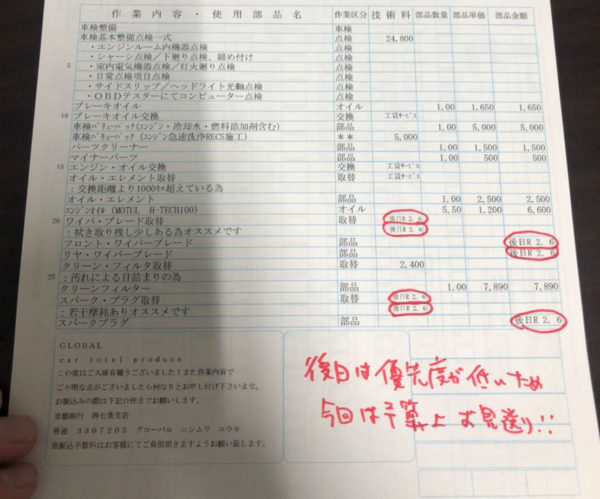 作業内容・使用部品名 作業区分 技術料 部品数量 部品単価 部品金額
車検整備 車検
車検基本整備点検一式 点検 24,800
・エンジンルーム内機器点検 点検
・シャーシ点検/下廻り点検、締め付け 点検
5 ・室内電気機器点検/灯火廻り点検 点検
・日常点検項目点検 点検
・サイドスリップ/ヘッドライト光軸点検 点検
・OBDテスターにてコンピューター点検 点検
ブレーキオイル オイル 1.00 1,650 1,650
10 ブレーキオイル交換 交換 工賃サービス
車検バリューパック(エンジン・冷却水・燃料添加剤含む) 部品 1.00 5,000 5,000
車検バリューパック(エンジン急速洗浄RECS施工) ** 5,000
パーツクリーナー 部品 1.00 1,500 1,500
マイナーパーツ 部品 1.00 500 500
15 エンジン・オイル交換 交換 工賃サービス
オイル・エレメント取替 取替 工賃サービス
:交換距離より1000キロ超えている為
オイル・エレメント 部品 1.00 2,500 2,500
エンジンオイル(MOTUL H-TECH100) オイル 5.50 1,200 6,600
20 ワイパ・ブレード取替 取替 後日R2.6
:拭き取り残し少しある為オススメです 後日R2.6
フロント・ワイパーブレード 部品 後日R2.6
リヤ・ワイパーブレード 部品 後日R2.6
クリーン・フィルタ取替 取替 2,400
25 :汚れによる目詰まりの為
クリーンフィルター 部品 1.00 7,890 7,890
スパーク・プラグ取替 取替 後日R2.6
:若干摩耗ありオススメです 後日R2.6
スパークプラグ 部品 後日R2.6
GLOBAL
car total produce
この度はご入庫有難うございました!また作業内容で
ご不明な点がございましたら何なりとお申し付け下さいませ。
お振込みの際は下記口座までお願いします。
京都銀行 西七条支店
普通 3307205 グローバル ニシムラ ユウキ
※振込手数料はお客様にてご負担頂きますようお願い致します。
後日は優先度が低いため
今回は予算上お見送り!!